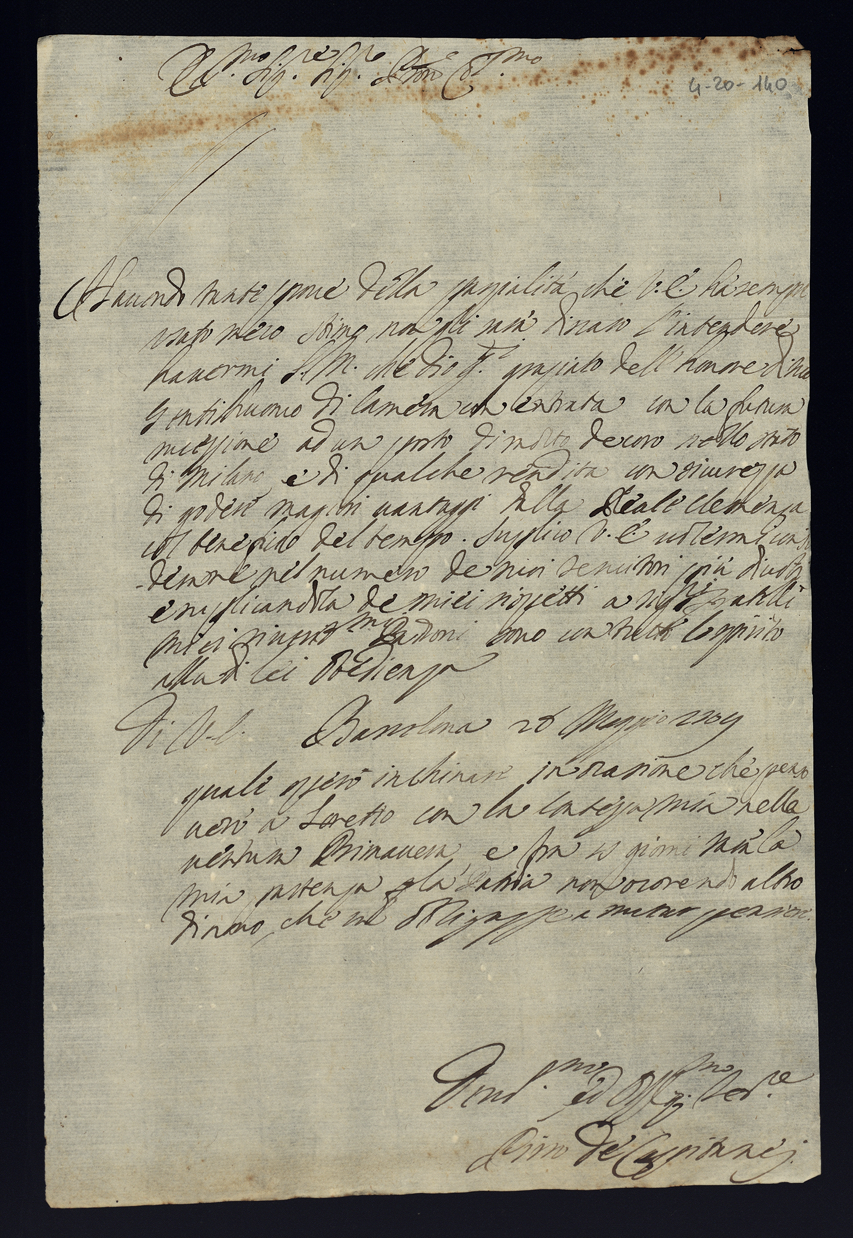 Ill.mo Sig.re Sig.re e Pron.e Col.mo
4-20-140
Havendo tante prove della parzialità che V.E. ha sempre
usato meco stimo non gli sarà discaro l'intendere
havermi S.M. che Dio g.di graziato dell'honore di suo
Gentilhuomo di Camera con entrata con la futura
ad un posto di molto decoro nello stato
di Milano e di qualche rendita con sicurezza
di godere magiori vantaggi dalla Reale Clemenza
col beneficio del tempo. Suplico V.E. volermi consi-
derare nel numero de suoi servitori più divoti
e replicandola de miei rispetti a Sig.ri fratelli
miei Padroni sono con tutto lo spirito
alla di lei Obedienza
Di V.E. Barzelona 26 Maggio 1709
quale spero inchinare in ocasione che
verò a Loretto con la Contessa mia nella
ventura Primavera, e fra 15 giorni sarà la
mia partenza p la Patria non ocorendo altro
di novo, che mi obligasse a mutar pensiere.
Devot.mo ed Obblig.mo Ser.re
de Capitanej.